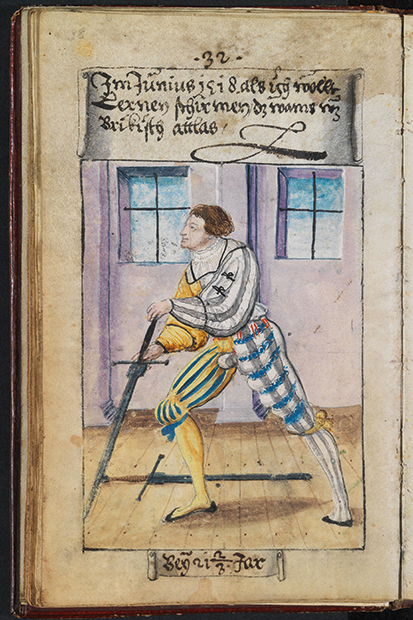 ·32·
Im Junius 1518. als ich wollt
Lernen schirmen, dz wams wz
Brikisch attlas.
Bey 21 2/3. Jar